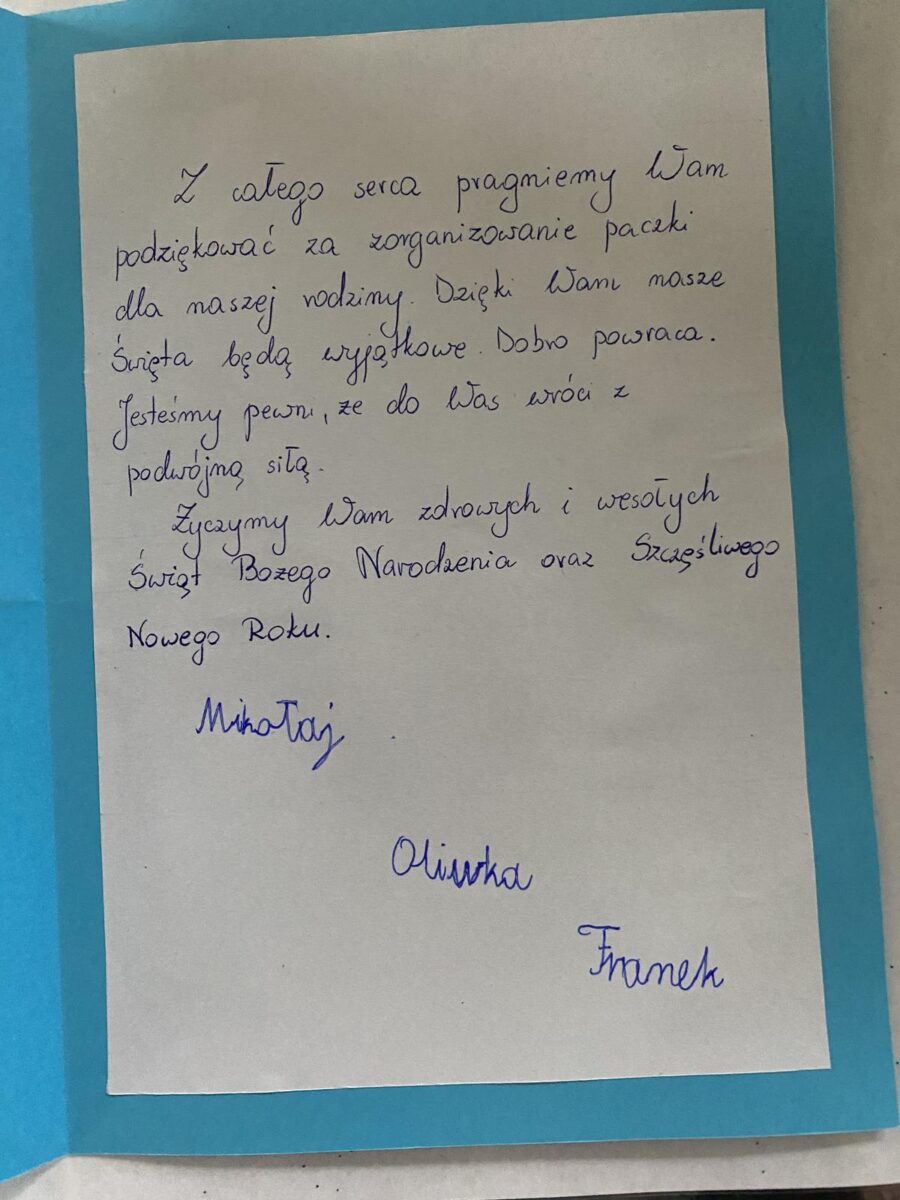 Z całego serca pragniemy Wam
podziękować za zorganizowanie paczki
dla naszej rodziny. Dzięki Wam nasze
Święta będą wyjątkowe. Dobro powraca.
Jesteśmy pewni, że do Was wróci z
podwójną siłą.
Życzymy Wam zdrowych i wesołych
Świąt Bożego Narodzenia oraz Szczęśliwego
Nowego Roku.
Mikołaj
Oliwka
Franek